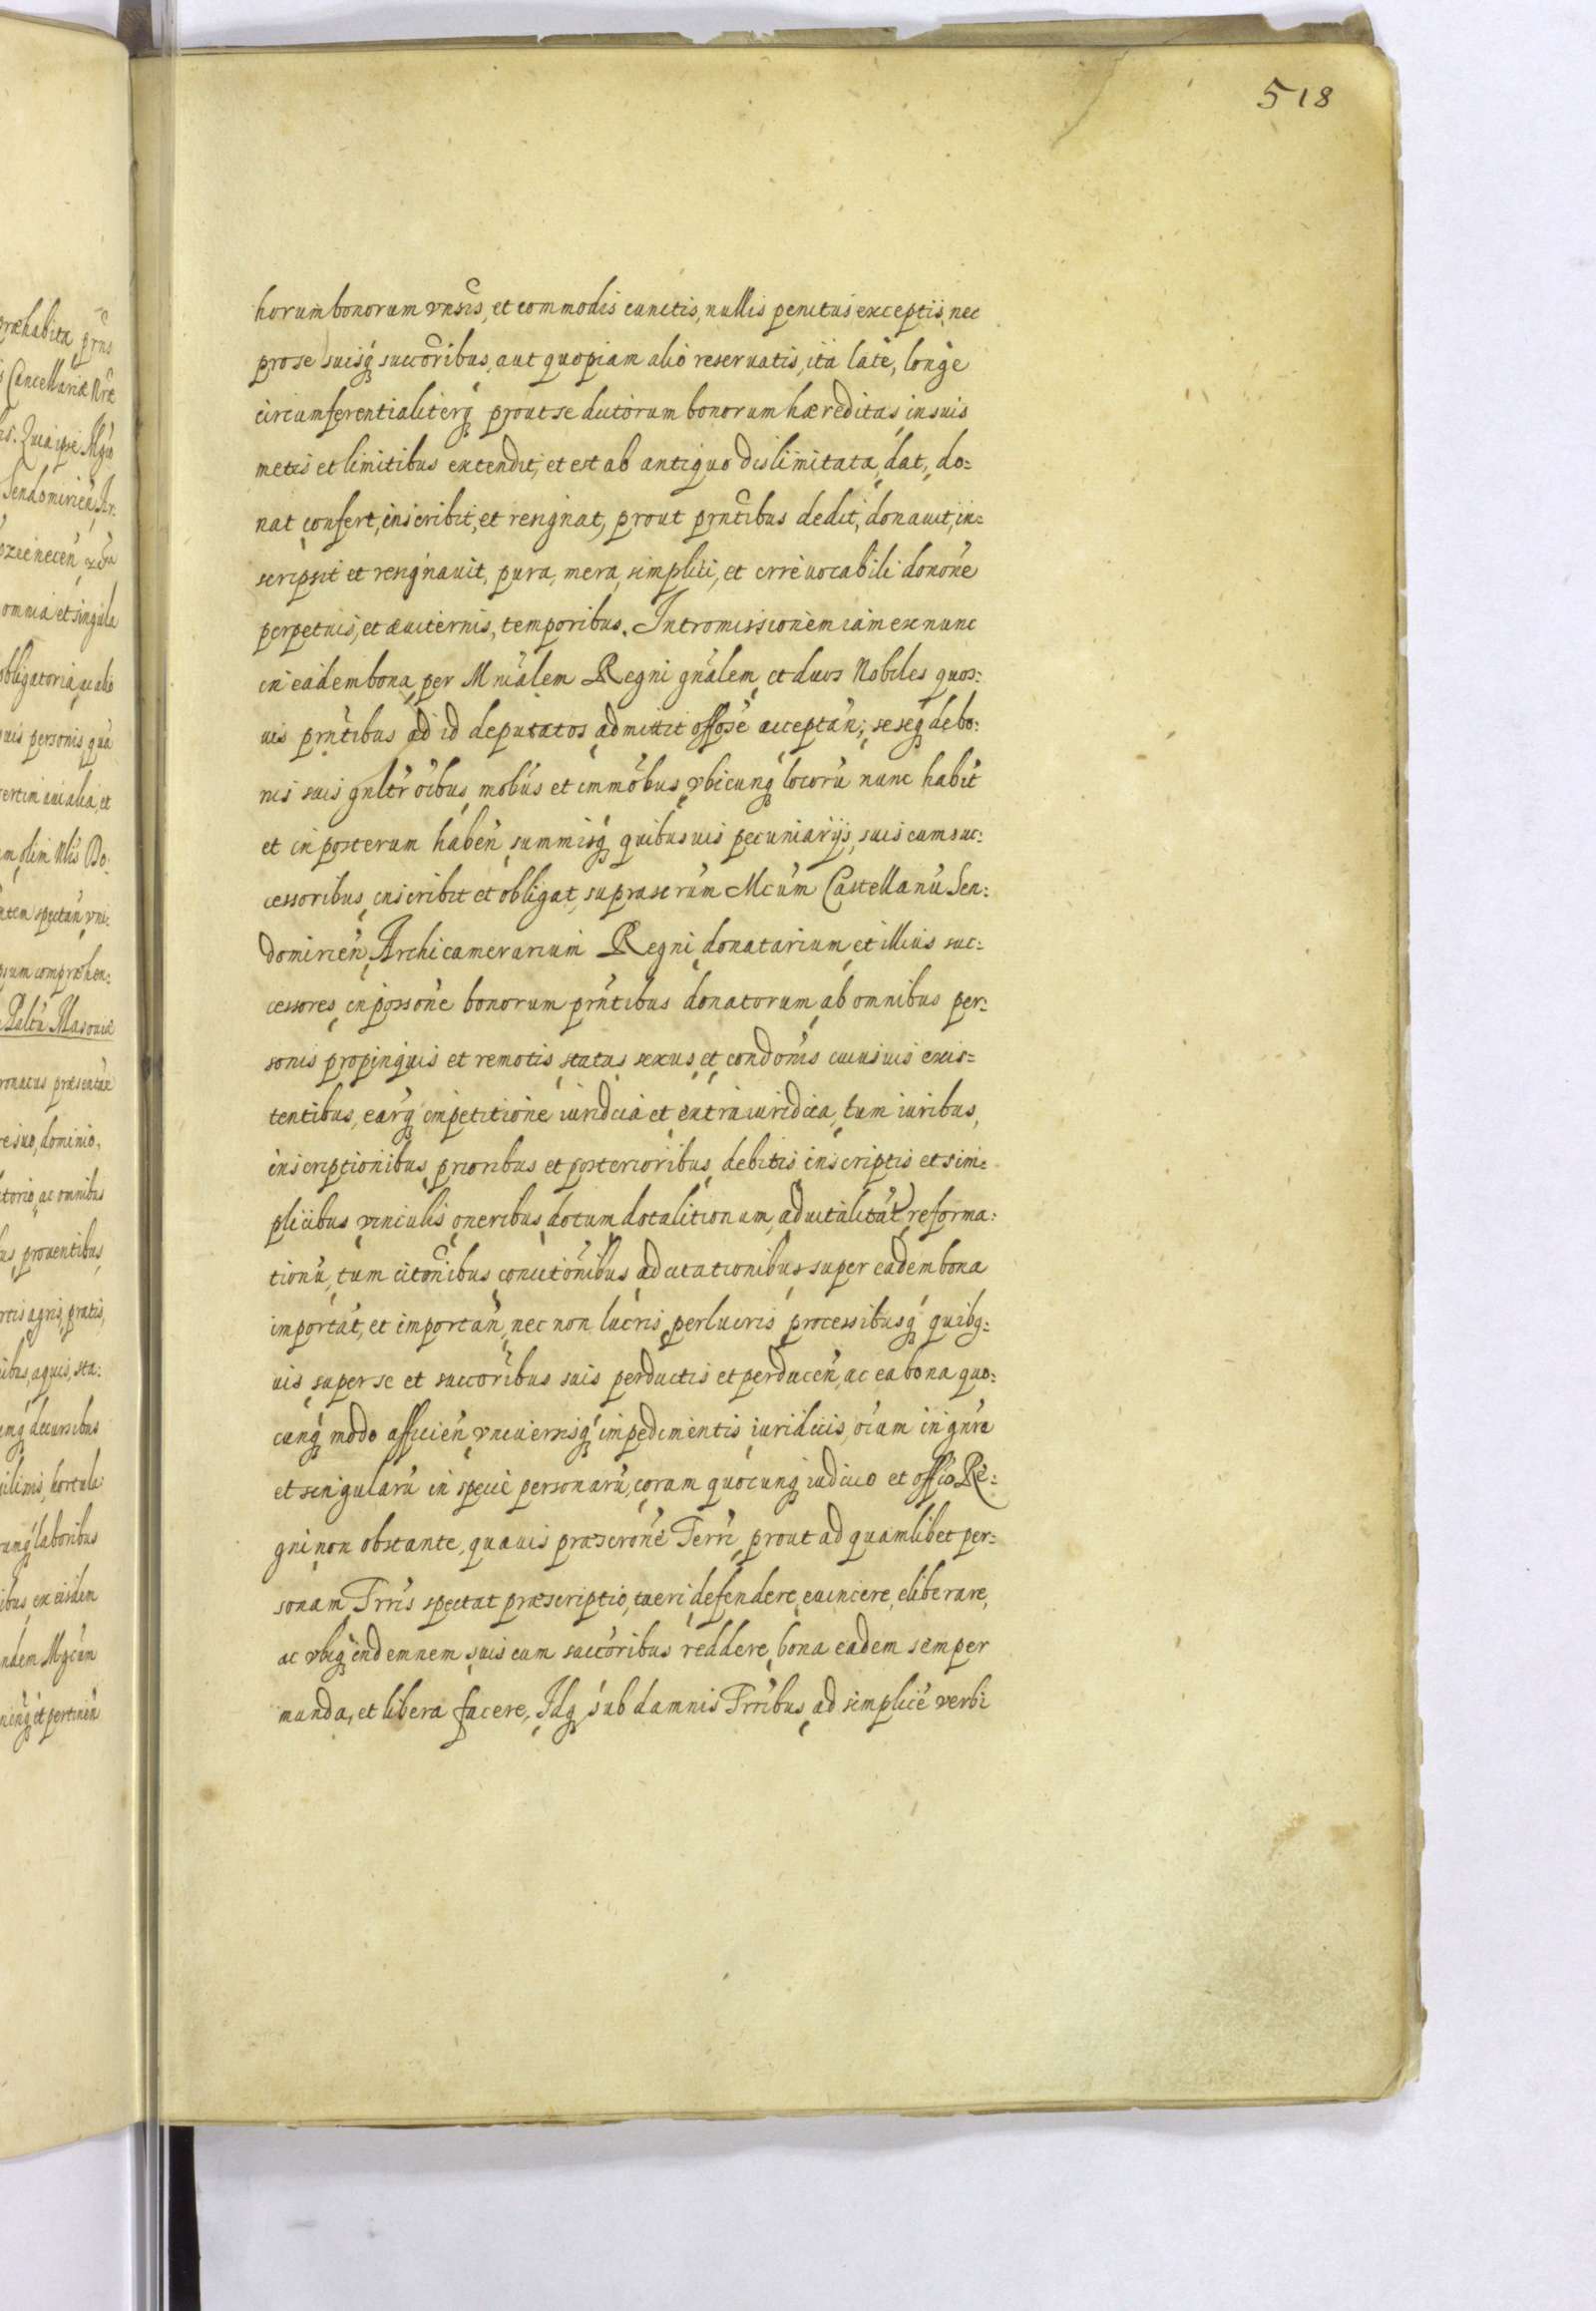 518
horum bonorum vnsis, et commodis cunctis, nullis penitus exceptis, nec
pro se suisq́ succoribus, aut quopiam alio reseruatis, ita late, longe
circumferentialiterq́ prout se dictorum bonorum hæreditas, in suis
metis et limitibus extendit, et est ab antiquo dislimitata, dat, do=
nat confert, inscribit, et resignat, prout prntibus dedit, donauit, in=
scripsit et resignauit, pura, mera, simplici, et irreuocabili donõne
perpetuis, et æuiternis, temporibus. Intromissionem iam ex nunc
in eadem bona per Mnialem Regni gnalem, et duos Nobiles quos:
uis prntibus ad id deputatos admittit offose acceptan̄, seseq́ de bo:
nis suis gnltr oibus mobus et immobus, vbicunq́ locorū nunc habit
et in posterum haben̄, summisq́ quibusuis pecuniarijs, suis cum suc:
cessoribus, inscribit et obligat, suprascrum Mcum Castellanū Sen:
domirien̄, Archicamerarium Regni, donatarium, et illius suc:
cessores, in possone bonorum prntibus donatorum, ab omnibus per:
sonis propinquis et remotis, status, sexus, et condonis cuiusuis exis=
tentibus, earq́ impetitione iuridica et extraiuridica, tum iuribus,
inscriptionibus, prioribus et posterioribus, debitis inscriptis et sim=
plicibus, vinculis, oneribus, dotum dotalitionum, aduitalitat, reforma:
tionū, tum citonibus, conuitonibus, adcitationibus super eadem bona
importat, et importan̄, nec non lucris, perlucris, processibusq́ quibq:
uis, super se et succoribus suis perductis et perducen̄, ac ea bona quo:
cunq́ modo afficien̄, vniuersisq́ impedimentis iuridicis, oiam in gnre
et singularū in specie personarū, coram quocunq́ iudicio et offio Re:
gni, non obstante, quauis præscrone Terri, prout ad quamlibet per:
sonam Trris spectat præscriptio, tueri, defendere, euincere, eliberare,
ac vbiq́ indemnem, suis cum succoribus reddere, bona eadem semper
munda, et libera facere, Idq́ sub damnis Trribus, ad simplice verbi